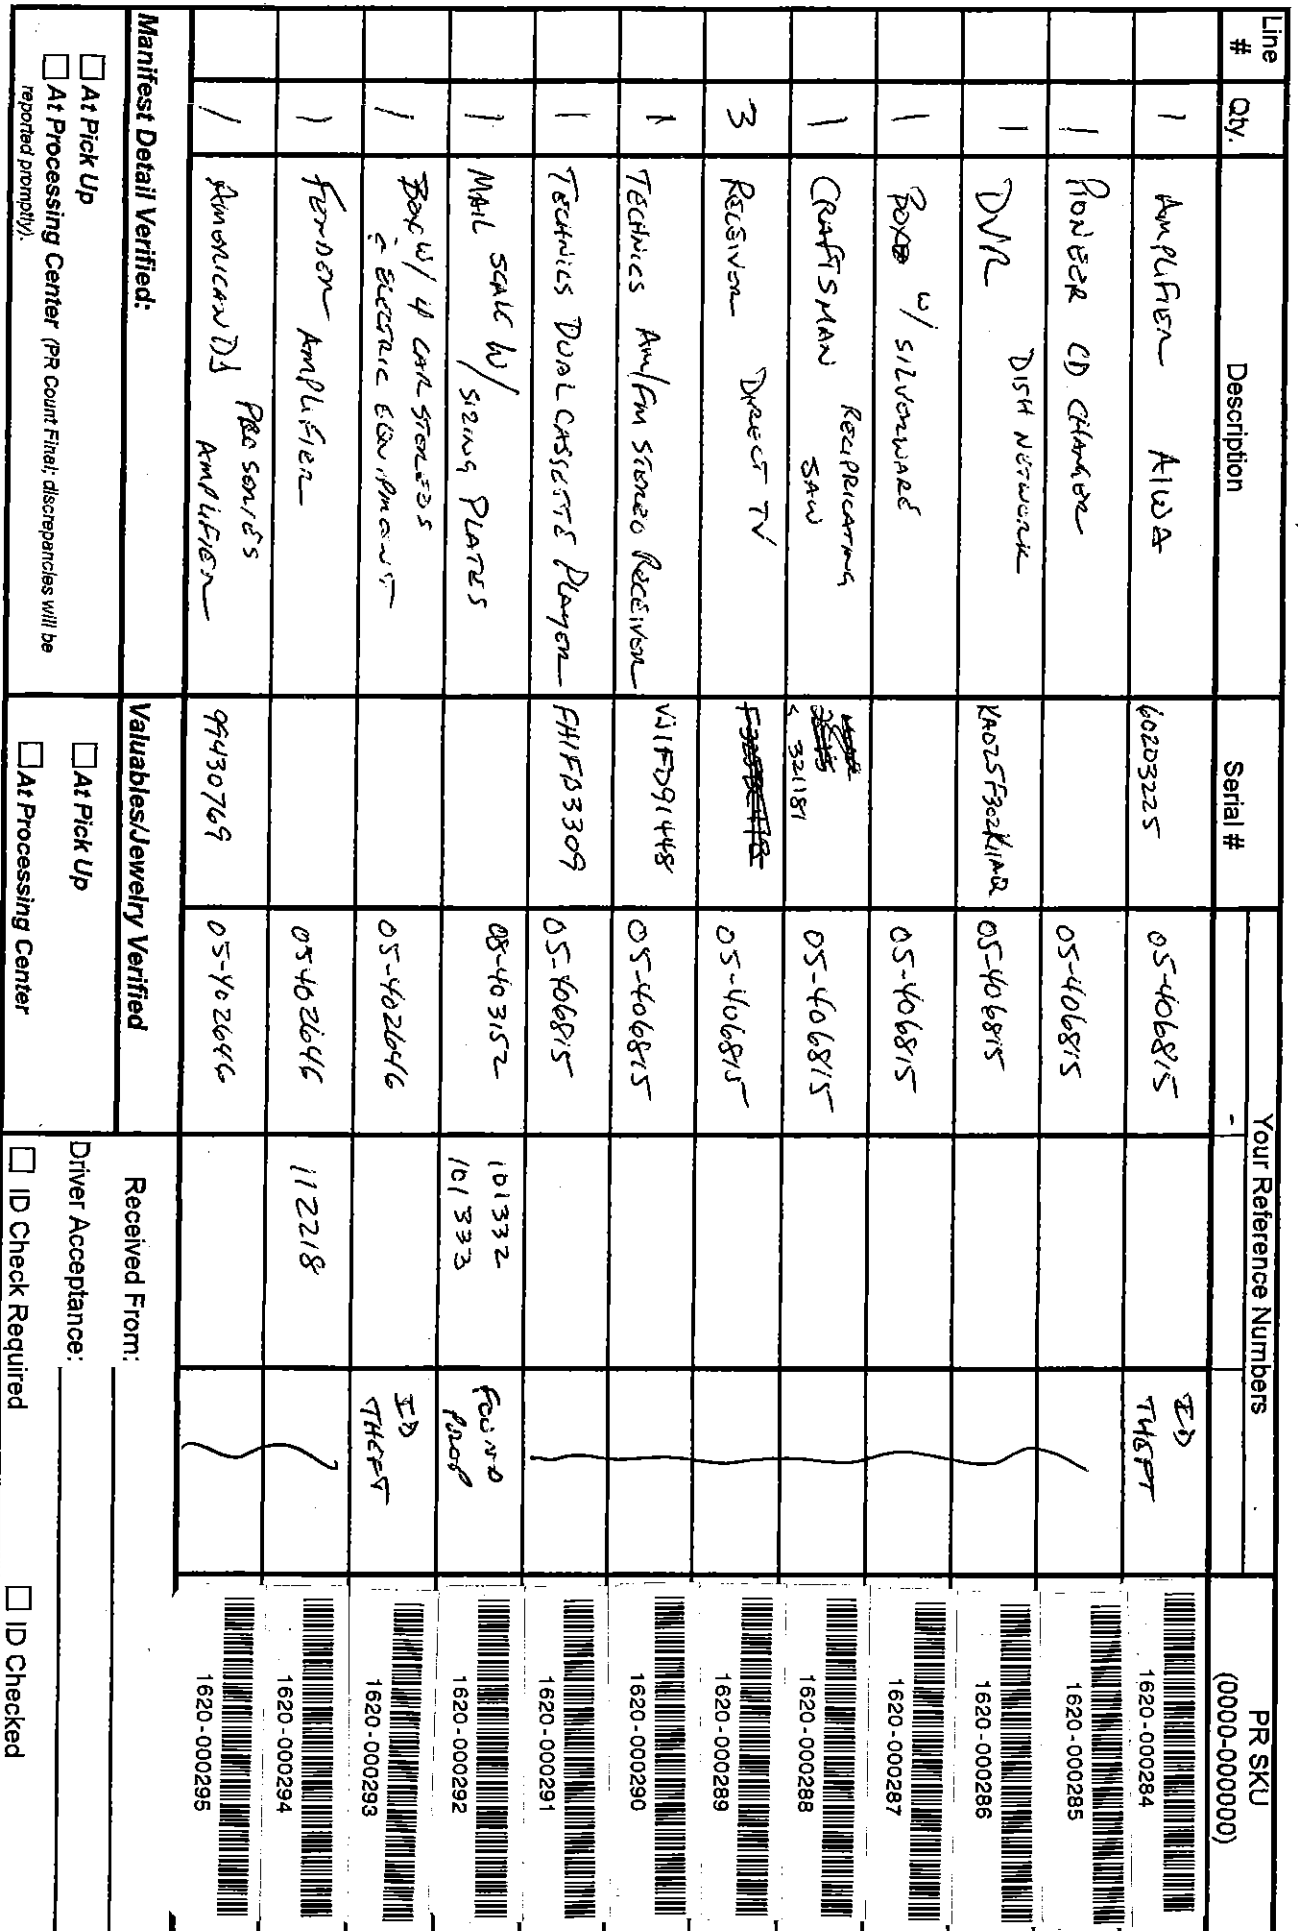 Line #
Qty.
Description
Serial #
Your Reference Numbers
-
PR SKU
(0000-000000)
1 AMPLIFIER AIWA 60203225 05-406815 ID THEFT 1620-000284
1 PIONEER CD CHANGER 05-406815 1620-000285
1 DVR DISH NETWORK 05-406815 1620-000286
1 BOX W/ SILVERWARE 05-406815 1620-000287
1 CRAFTSMAN RECIPRICATING SAW 321181 05-406815 1620-000288
3 RECEIVER DIRECT TV 05-406815 1620-000289
1 TECHNICS AM/FM STEREO RECEIVER 05-406815 1620-000290
1 TECHNICS DUAL CASSETTE PLAYER FH1FB3309 05-406815 1620-000291
1 MAIL SCALE W/ SIZING PLATES 05-403152 101332 101333 FOUND PROP 1620-000292
1 BOX W/ 4 CAR STEREOS & ELECTRIC EQUIPMENT 05-402646 ID THEFT 1620-000293
1 FENDER AMPLIFIER 05-402646 112218 1620-000294
1 AMERICAN DJ PRO SERIES AMPLIFIER 99430769 05-402646 1620-000295
Manifest Detail Verified:
☐ At Pick Up
☐ At Processing Center (PR Count Final; discrepancies will be
reported promptly).
Valuables/Jewelry Verified
☐ At Pick Up
☐ At Processing Center
Received From:
Driver Acceptance:
☐ ID Check Required ☐ ID Checked